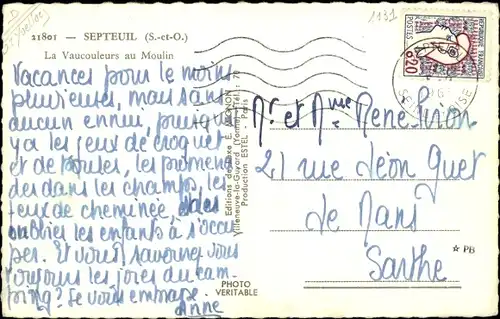 21801 — SEPTEUIL (S.-et-O.)
La Vaucouleurs au Moulin
Vacances pour le moins
pluvieuses, mais sans
aucun ennui, puisqu'il
y a les jeux de croquet
et de boules, les promena
des dans les champs, les
feux de cheminée, des
les enfants à s'occu
per. Et vous, savourez-vous
toujours les joies du cam-
ping? Je vous embrasse.
Anne
Editions de luxe E. MIGNON
Villeneuve-la-Guyard (Yonne) Tél.: 71
Production ESTEL - Paris
PHOTO
VERITABLE
1131
REPUBLIQUE FRANÇAISE
POSTES
0,20
SEPTEUIL
SEINE ET OISE
Mr et Mme René Piron
21 rue Léon Guet
Le Mans
Sarthe
★ PB